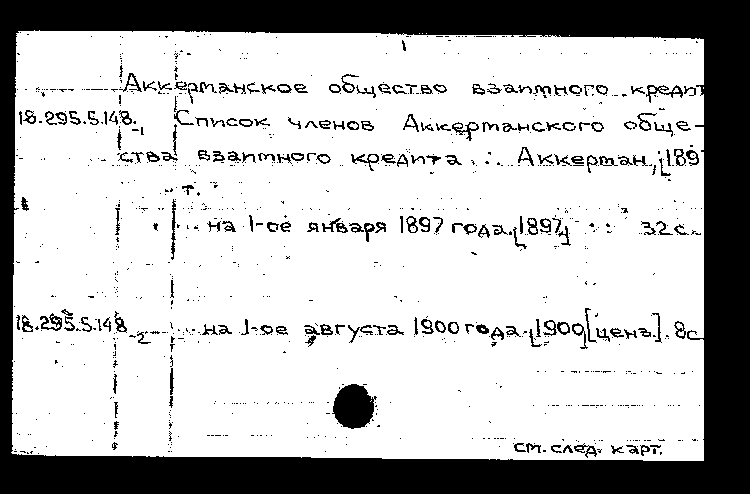 Аккерманское общество взаимного кредит
18.295.5.148.-1 Список членов Аккерманского обще-
ства взаимного кредита. : Аккерман, [189
т.
на 1-ое января 1897 года. [1897] 32 с.
18.295.5.148-2 на 1-ое августа 1900 года. [1900] [ценз.]. 8с
см. след. карт.